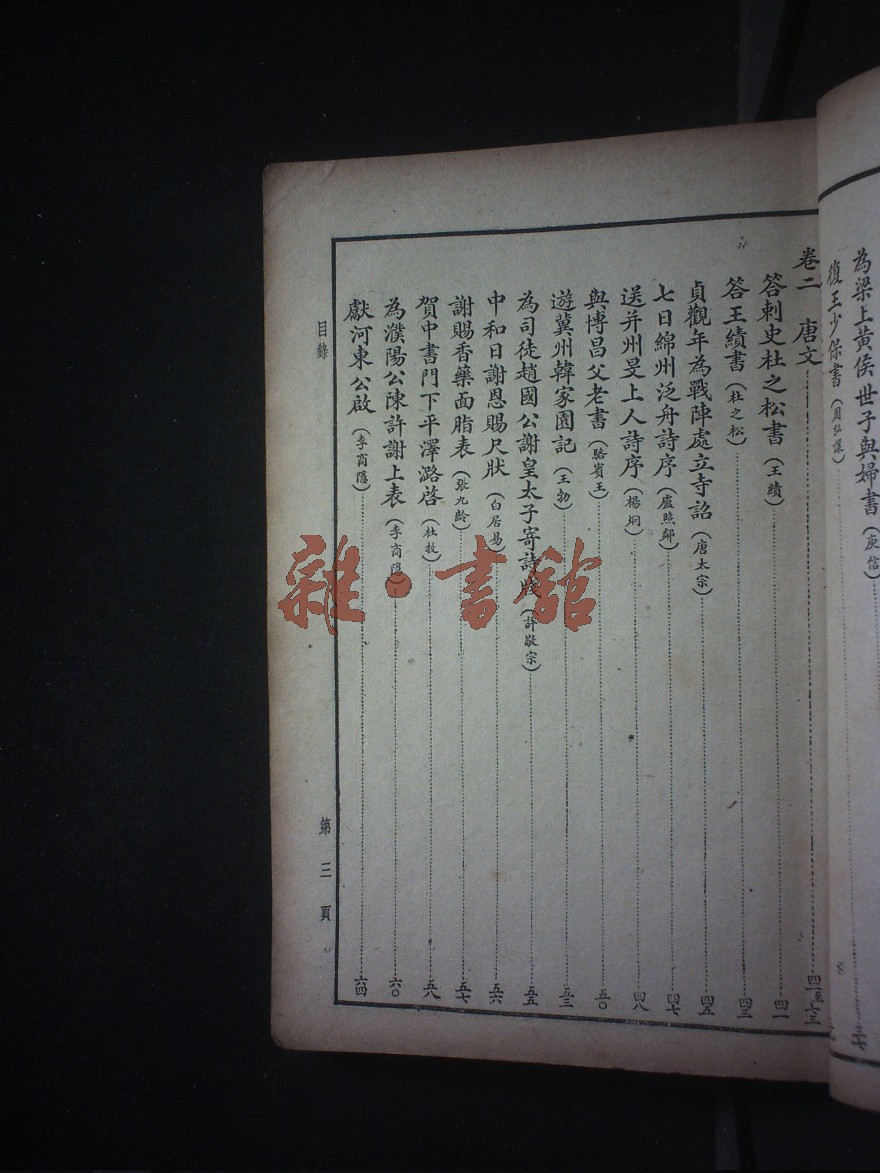 為梁上黃侯世子與婦書(庾信)……三七
復王少保書(周弘讓)
卷二 唐文……四一至七三
答刺史杜之松書(王績)……四一
答王績書(杜之松)……四三
貞觀年為戰陣處立寺詔(唐太宗)……四五
七日綿州泛舟詩序(盧照鄰)……四七
送并州旻上人詩序(楊炯)……四八
與博昌父老書(駱賓王)……五〇
遊冀州韓家園記(王勃)……五三
為司徒趙國公謝皇太子寄詩牋(許敬宗)……五五
中和日謝恩賜尺狀(白居易)……五六
謝賜香藥面脂表(張九齡)……五七
賀中書門下平澤潞啓(杜牧)……五八
為濮陽公陳許謝上表(李商隱)……六〇
獻河東公啟(李商隱)……六四
目錄
第三頁
雜·書館